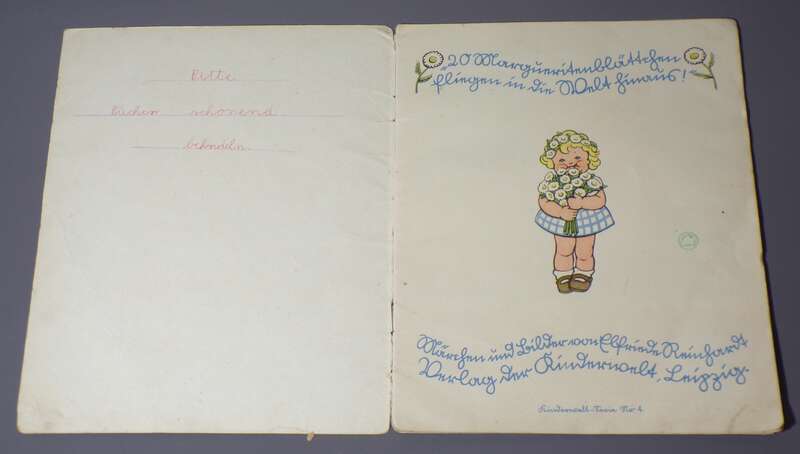 Bitte
Bücher schonend
behandeln
„20 Margueritenblättchen
fliegen in die Welt hinaus!“
Märchen und Bilder von Elfriede Reinhardt
Verlag der Kinderwelt, Leipzig.
Kinderwelt-Serie No 4